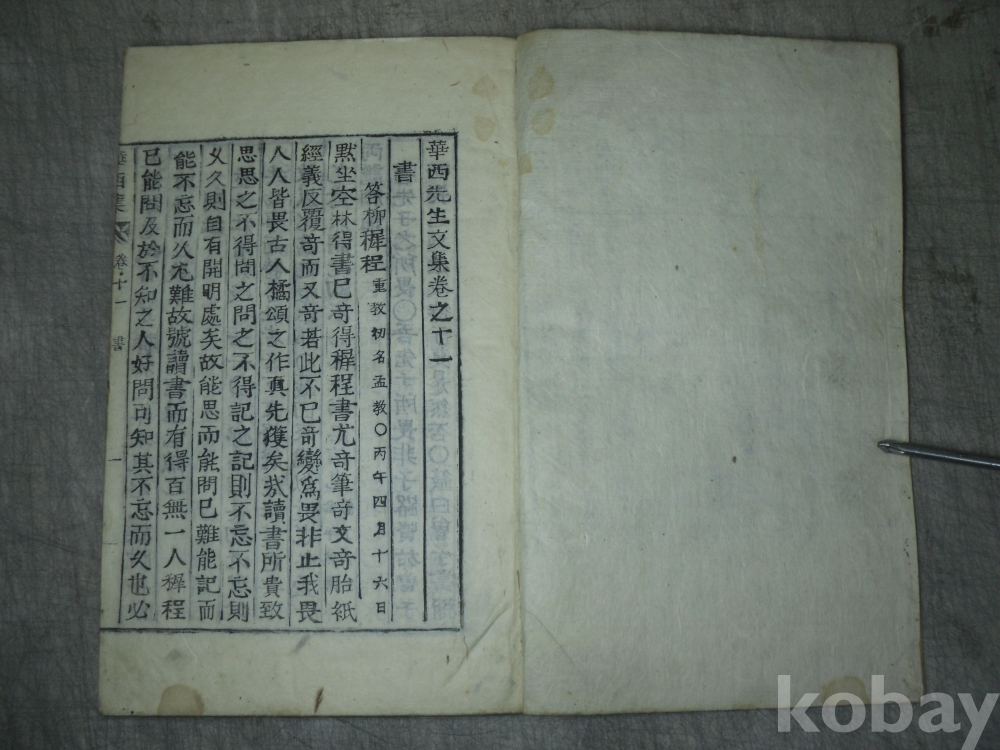 華西先生文集卷之十一
書
答柳穉程 重教初名孟教〇丙午四月十六日
黙坐空林得書已竒得穉程書尤竒筆竒文竒胎紙
經義反覆竒而又竒若此不已竒變爲畏非止我畏
人人皆畏古人橘頌之作真先獲矣㢤讀書所貴致
思思之不得問之問之不得記之記則不忘不忘則
乆乆則自有開明處矣故能思而能問已難能記而
能不忘而乆尤難故號讀書而有得百無一人穉程
已能問及於不知之人好問可知其不忘而乆也必
華西集 卷十一 書 一
kobay